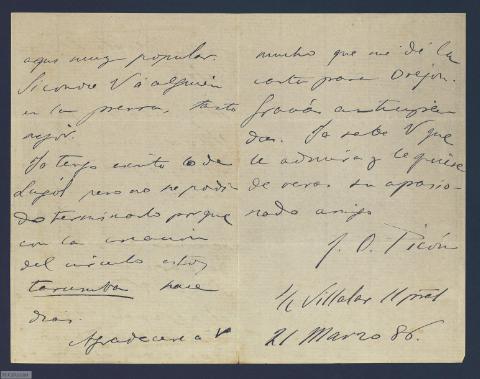 aquí muy popular.
Si conoce V á alguien
en la prensa, tanto
mejor.
Ya tengo escrito lo de
pero no he podi
do terminarlo porque
con la creación
del círculo estoy
tarumba hace
días.
Agradeceré a V
mucho que me dé la
carta para Orejón.
Gracias anticipa
das. Ya sabe V que
le admira y le quiere
de veras su apasio-
nado amigo
J. O. Picón
Villalar 11
21 Marzo 86.